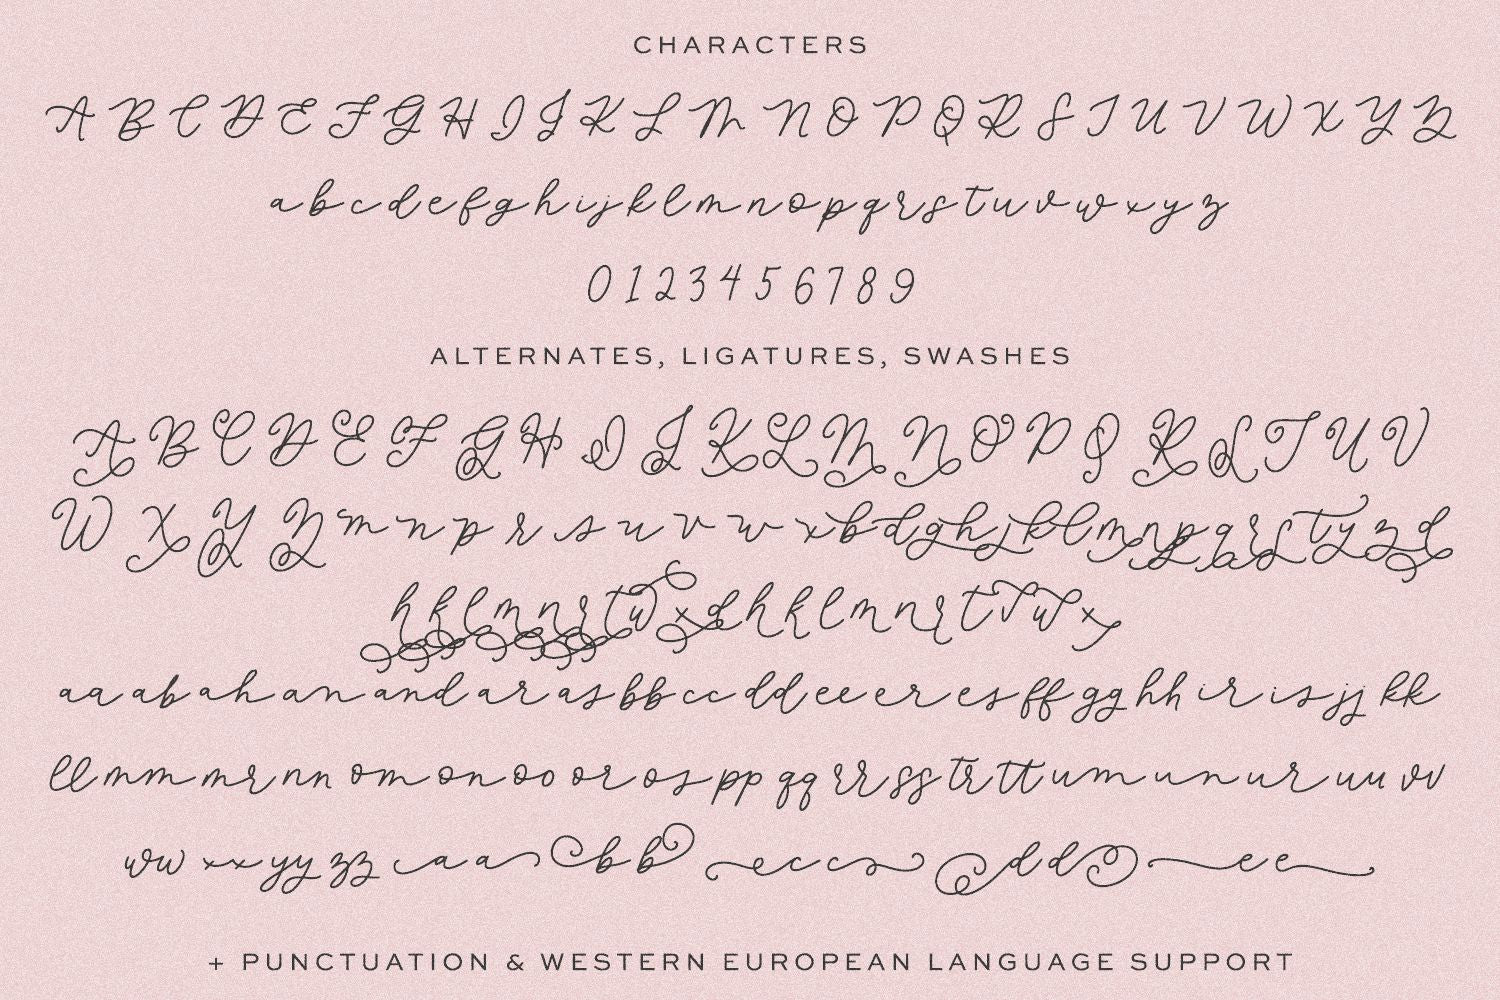 CHARACTERS
A B C D E F G H I J K L M N O P Q R S T U V W X Y Z
a b c d e f g h i j k l m n o p q r s t u v w x y z
0 1 2 3 4 5 6 7 8 9
ALTERNATES, LIGATURES, SWASHES
A B C D E F G H I J K L M N O P Q R S T U V
W X Y Z m n p r s u v w x b d g h j k l m n p q r s t y z d
h k l m n r t w x d h k l m n r t v w x
aa ab ah an and ar as bb cc dd ee er es ff gg hh ir is jj kk
ll mm mr nn om on oo or os pp qq rr ss tr tt um un ur uu vv
ww xx yy zz a a b b c c d d e e
+ PUNCTUATION & WESTERN EUROPEAN LANGUAGE SUPPORT